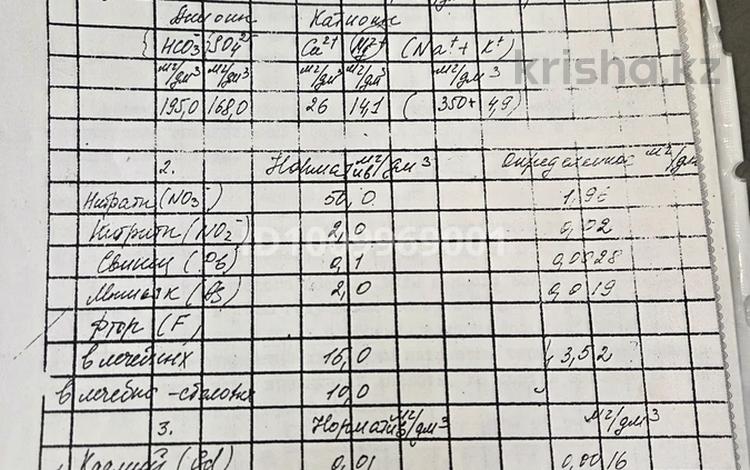 Анионы Катионы
{HCO3⁻ SO4²⁻ Ca²⁺ Mg²⁺ (Na⁺ + K⁺)
мг/дм³ мг/дм³ мг/дм³ мг/дм³ мг/дм³
195,0 168,0 26 141 (350+ 4,9)
krisha.kz
2. Норматив мг/дм³ Определенное мг/дм
Нитраты (NO3⁻) 50,0 1,96
Нитриты (NO2⁻) 2,0 0,02
ID1049969001
Свинец (Pb) 0,1 0,0028
Мышьяк (As) 2,0 0,0019
Фтор (F)
в лечебных 15,0 3,52
в лечебно-столовых 10,0
3. Норматив мг/дм³ мг/дм³
Кадмий (Cd) 0,01 0,0016